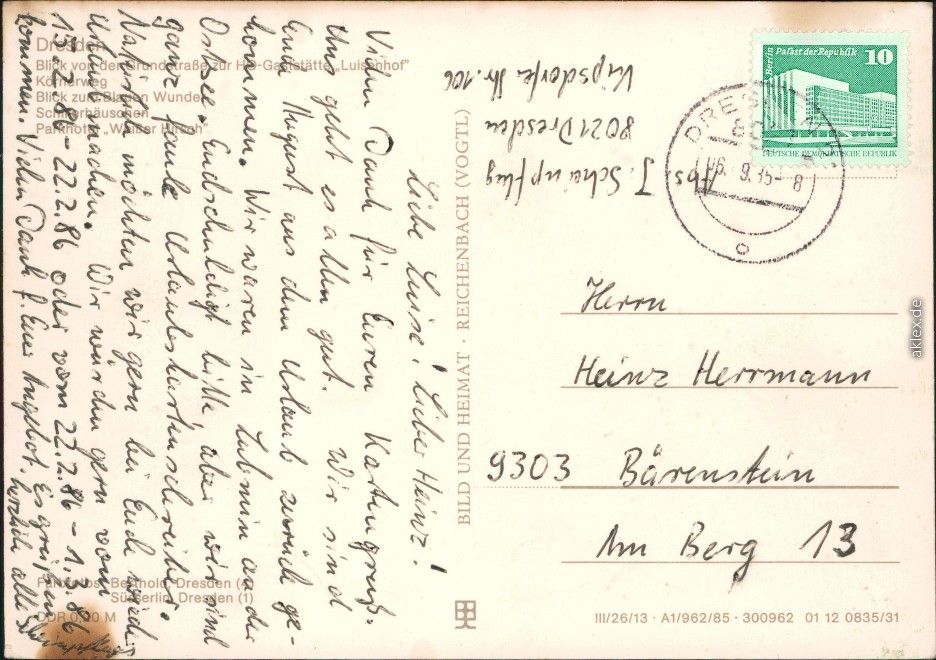 Dresden
Blick von der Grundstraße zur HO-Gaststätte „Luisenhof"
Körnerweg
Blick zum Blauen Wunder
Schillerhäuschen
Parkhotel „Weißer Hirsch"
Liebe Luise! Lieber Heinz!
Vielen Dank für Euren Kartengruß.
Uns geht es allen gut. Wir sind
Ende August aus dem Urlaub zurück ge-
kommen. Wir waren in Lubmin an der
Ostsee. Entschuldigt bitte, aber wir sind
ganz faule Urlaubskartenschreiber.
Natürlich möchten wir gern bei Euch wieder
Urlaub machen. Wir würden gern vom
15.2.86 - 22.2.86 oder vom 22.2.86 - 1.3.86
kommen. Vielen Dank f. Euer Angebot. Es grüßen
herzlich alle
Farbfotos: Berthold, Dresden (4)
Süßerlin, Dresden (1)
DDR 0,20 M
BILD UND HEIMAT · REICHENBACH (VOGTL)
Abs. J. Scheinpflug
8021 Dresden
Kipsdorfer Str. 106
Berlin Palast der Republik
10
DEUTSCHE DEMOKRATISCHE REPUBLIK
DRESDEN
Herrn
Heinz Herrmann
9303 Bärenstein
Am Berg 13
III/26/13 · A1/962/85 · 300962 01 12 0835/31
aklex.de